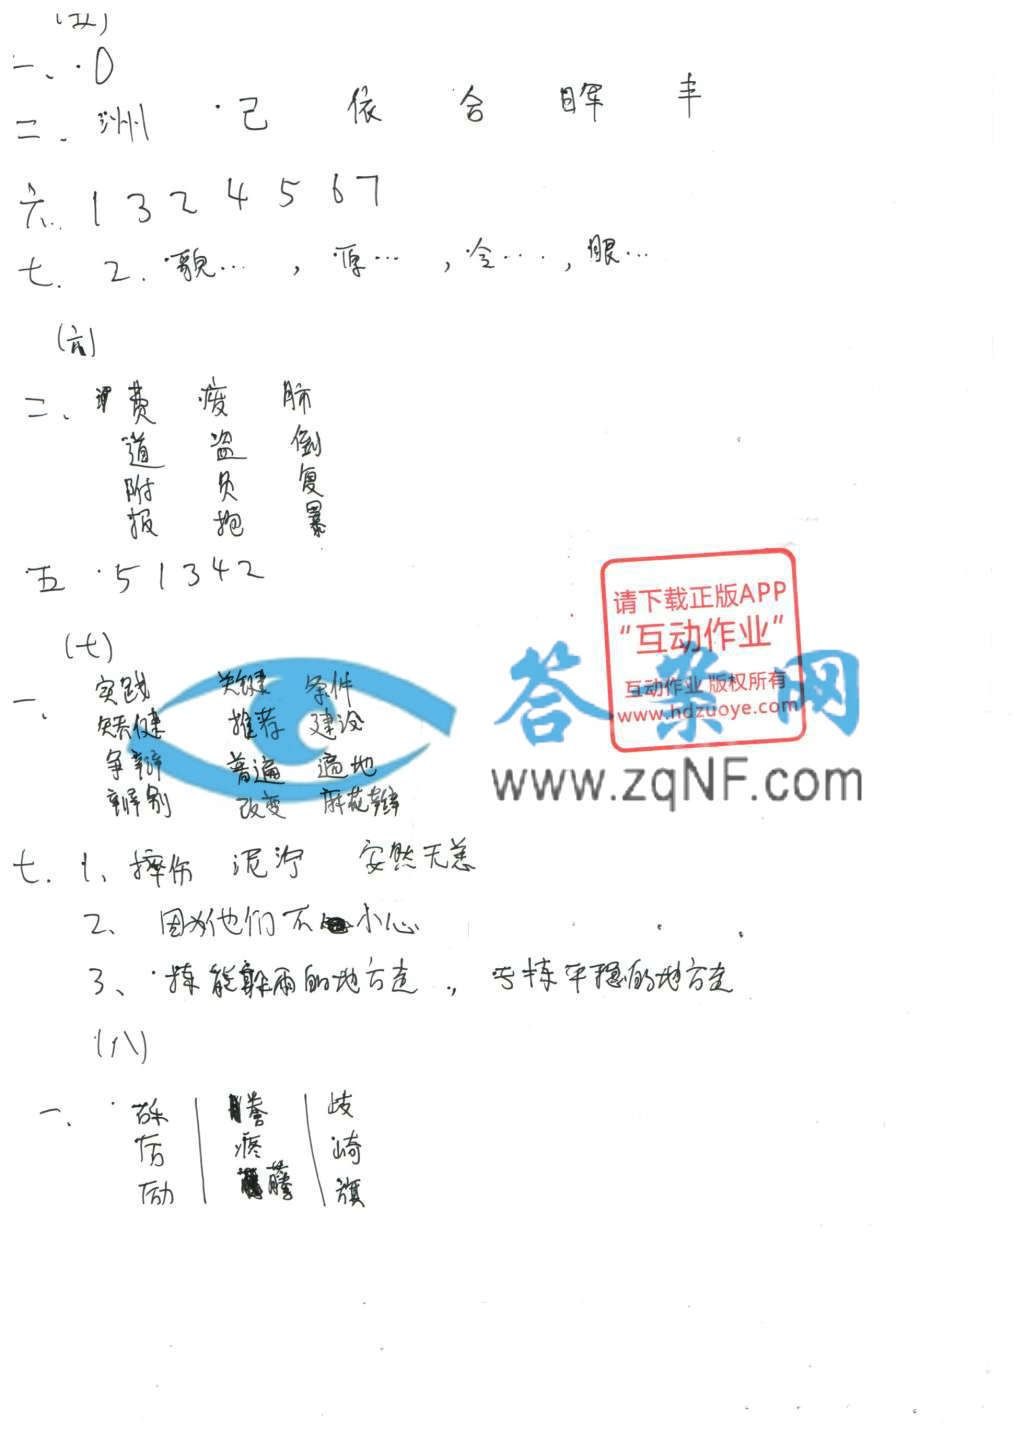 (五)
一、D
二、洲 己 依 合 晖 丰
六、1 3 2 4 5 6 7
七、2. 貌… , 原… , 令… , 眼…
(六)
二、费 疲 肺
道 盗 倒
附 负 复
报 抱 暴
五 5 1 3 4 2
(七)
一、实践 关键 条件
矫健 推荐 建设
争辩 普遍 遍地
辨别 改变 麻花辫
七、1、摔伤 泥泞 安然无恙
2、因为他们不小心
3、拣能躲雨的地方走 , 拣平稳的地方走
(八)
一、砾 誉 歧
厉 疼 崎
励 藤 旗
请下载正版APP
“互动作业”
互动作业 版权所有
www.hdzuoye.com
答案网
www.zqNF.com